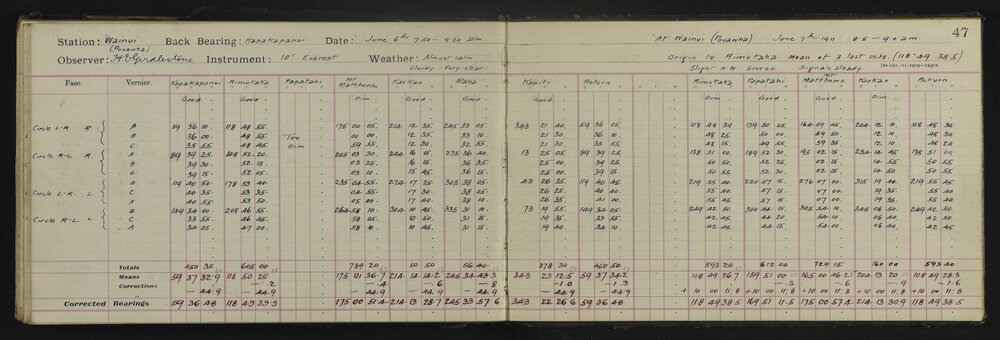 47
Station: Wainui Back Bearing: Kapakapanui Date: June 6th 7.50 – 9.20 a.m. At Wainui (Pouawha) June 7th 1911 8.5 – 9.0 a.m.
(Pouawha)
Observer: H.E. Girdlestone Instrument: 10" Everest Weather: Almost calm Origin to Rimutaka Mean of 3 last sets. (118° 49' 38.5)
Cloudy - Very clear Slight N.W. breeze Signals steady.
Face. Vernier. Kapakapanui Rimutaka Papatahi Mt Matthews Kaukau Mana Kapiti Return Rimutaka Papatahi Mt Matthews Kaukau Return.
Good Good Dim Good Good Good Good Dim Good Dim Good
Circle L-R R A 59 36 10 118 48 55 175 00 05 214 12 35 245 33 05 343 21 40 59 36 05 108 48 39 159 50 05 164 59 45 204 12 10 108 48 30
B 36 00 48 55 Too 00 00 12 35 33 10 21 30 36 10 48 25 50 00 49 50 12 10 48 30
C 35 55 48 45 Dim 59 55 12 30 32 55 21 30 35 55 48 15 49 55 59 35 12 10 48 20
Circle R-L R A 89 39 25 148 52 20 205 03 30 244 16 15 275 36 40 13 25 05 89 39 25 138 51 00 189 52 30 195 02 15 234 14 45 138 51 00
B 39 30 52 15 03 25 16 15 36 35 25 00 39 25 50 50 52 25 02 15 14 55 50 55
C 39 15 52 05 03 10 15 45 36 15 25 00 39 15 50 55 52 30 02 15 14 50 50 55
Circle L-R L B 119 40 50 178 53 40 235 04 55 274 17 25 305 38 05 43 26 35 119 40 45 219 55 40 220 57 15 276 07 00 315 19 40 219 55 45
C 40 35 53 35 04 55 17 30 38 05 26 25 40 40 55 40 57 15 07 00 19 35 55 40
A 40 55 53 50 05 00 17 40 38 10 26 35 41 00 55 45 57 15 07 00 19 35 55 40
Circle R-L L B 149 34 00 208 46 55 264 58 10 304 10 45 335 31 10 73 19 55 149 34 05 249 42 50 300 44 15 305 54 10 345 06 50 249 42 50
C 33 55 46 45 58 05 10 50 31 15 19 35 33 55 42 45 44 20 54 10 06 40 42 50
A 34 05 47 00 58 10 10 45 31 15 19 40 34 10 42 45 44 15 54 05 06 40 42 45
Totals 450 35 605 00 739 20 50 50 56 40 278 30 450 50 593 20 612 00 729 15 160 00 593 40
Means 59 37 32.9 118 50 25 175 01 36.7 214 14 14.2 245 34 43.3 343 23 12.5 59 37 34.2 108 49 26.7 159 51 00 165 00 46.2 204 13 20 108 49 28.3
Corrections – .2 – .4 – .6 – .8 – 1.0 – 1.3 – .3 – .6 – .9 – 1.6
– 44.9 – 44.9 – 44.9 – 44.9 – 44.9 – 44.9 – 44.9 + 10 00 11.8 + 10 00 11.8 + 10 00 11.8 + 10 00 11.8 + 10 00 11.8
Corrected Bearings 59 36 48 118 49 39.9 175 00 51.4 214 13 28.7 245 33 57.6 343 22 26.6 59 36 48 118 49 38.5 169 51 11.5 175 00 57.4 214 13 30.9 118 49 38.5